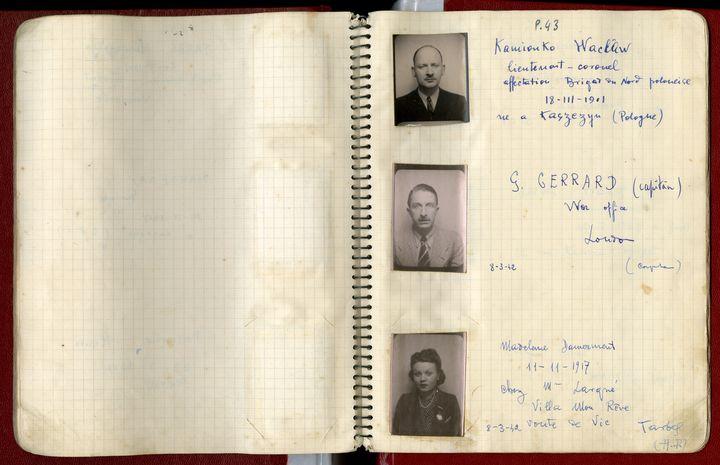 P.43
Kamionko Wacław
lieutenant-colonel
affectation Brigade du Nord polonaise
18-III-1901
ne a Kaszezyn (Pologne)
G. GERRARD (capitán)
War office
London
8-3-42
Madeleine Damerment
11-11-1917
chez Mme Larqué
Villa Mon Rêve
8-3-42 route de Vic Tarbes
(H.P.)